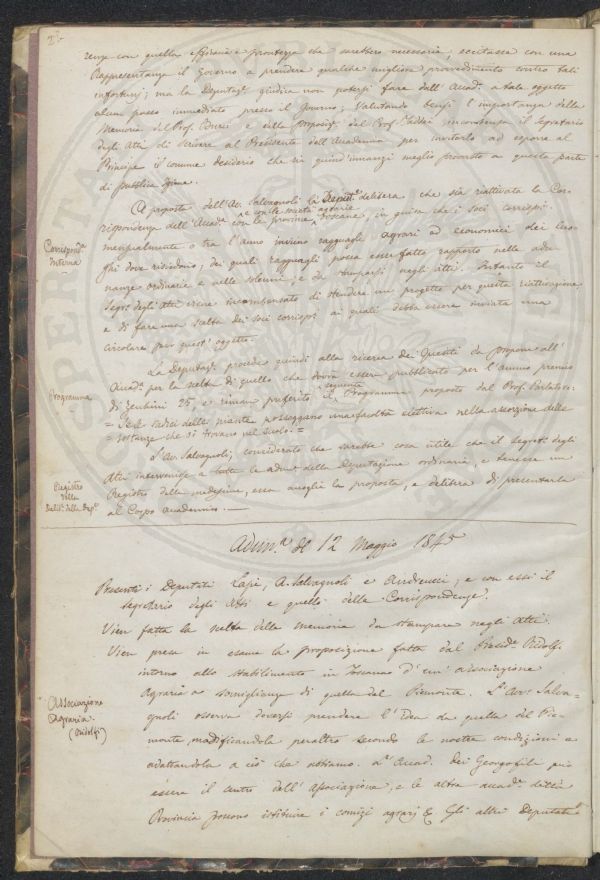 renze con quella efficacia e prontezza che sarebbero necessarie, eccitasse con una
Rappresentanza il Governo a prendere qualche migliore provvedimento contro tali
infortunj; ma la Deputazᵉ giudica non potersi fare dall' Accadᵃ a tale oggetto
alcun passo immediato presso il Governo; Valutando bensì l'importanza della
Memoria del Prof. e della proposizᵉ del Profʳ Taddei incombensa il Segretario
degli Atti di scrivere al Presidente dell'Accademia per invitarlo ad esporre al
Principe il comune desiderio che sia quind'innanzi meglio provvisto a questa parte
di pubblica igiene.
A proposta dell'Av. Salvagnoli la Deputᵉ delibera che sia riattivata la Cor-
rispondenza dell'Accadᵃ con le provincie e con le società agrarie toscane, in guisa che i soci corrispⁱ
Corrispondᵃ
Interna
mensualmente o tra l'anno inviino ragguagli agrari ed economici dei luo-
ghi dove risiedono, dei quali ragguagli possa esser fatto rapporto nelle adu-
nanze ordinarie e nelle solenni, e da stamparsi negli Atti. Pertanto il
Segrᵒ degli Atti viene incombensato di stendere un progetto per questa riattivazione
e di fare una scelta dei soci corrispⁱ ai quali debba essere inviata una
circolare per quest'oggetto.
La Deputazᵉ procede quindi alla ricerca dei Quesiti da proporre all'
Programma
Accadᵃ per la scelta di quello che dovrà essere pubblicato per l'annuo premio
di Zecchini 25, e riman preferito il seguente Programma proposto dal Prof. Parlatore
= Se le radici delle piante posseggano una facoltà elettiva nella assorzione delle
= sostanze che si trovano nel suolo. =
L'Av. Salvagnoli, considerato che sarebbe cosa utile che il segretᵒ degli
Atti intervenisse a tutte le adunᵉ della Deputazione ordinaria, e tenesse un
Registro
delle
Delibᵉ della Depᵉ
Registro delle medesime, essa accoglie la proposta, e delibera di presentarla
al Corpo Accademico.
Adunᵃ del 12 Maggio 1845
Presenti i Deputati Lapi, A. Salvagnoli e Andreucci, e con essi il
segretario degli Atti e quello delle Corrispondenze.
Vien fatta la scelta delle memorie da stampare negli Atti.
Vien presa in esame la proposizione fatta dal Presidᵉ Ridolfi
intorno allo stabilimento in Toscana d'un'associazione
Associazione
Agraria.
(Ridolfi)
Agraria a somiglianza di quella del Piemonte. L'Av. Salva-
gnoli osserva doversi prendere l'idea da quella del Pie-
monte, modificandola peraltro secondo le nostre condizioni e
adattandola a ciò che abbiamo. L'Accad. dei Georgofili può
essere il centro dell'Associazione, e le altre accadᵉ della
Provincia possono istituire i comizi agrarj &. Gli altri Deputati